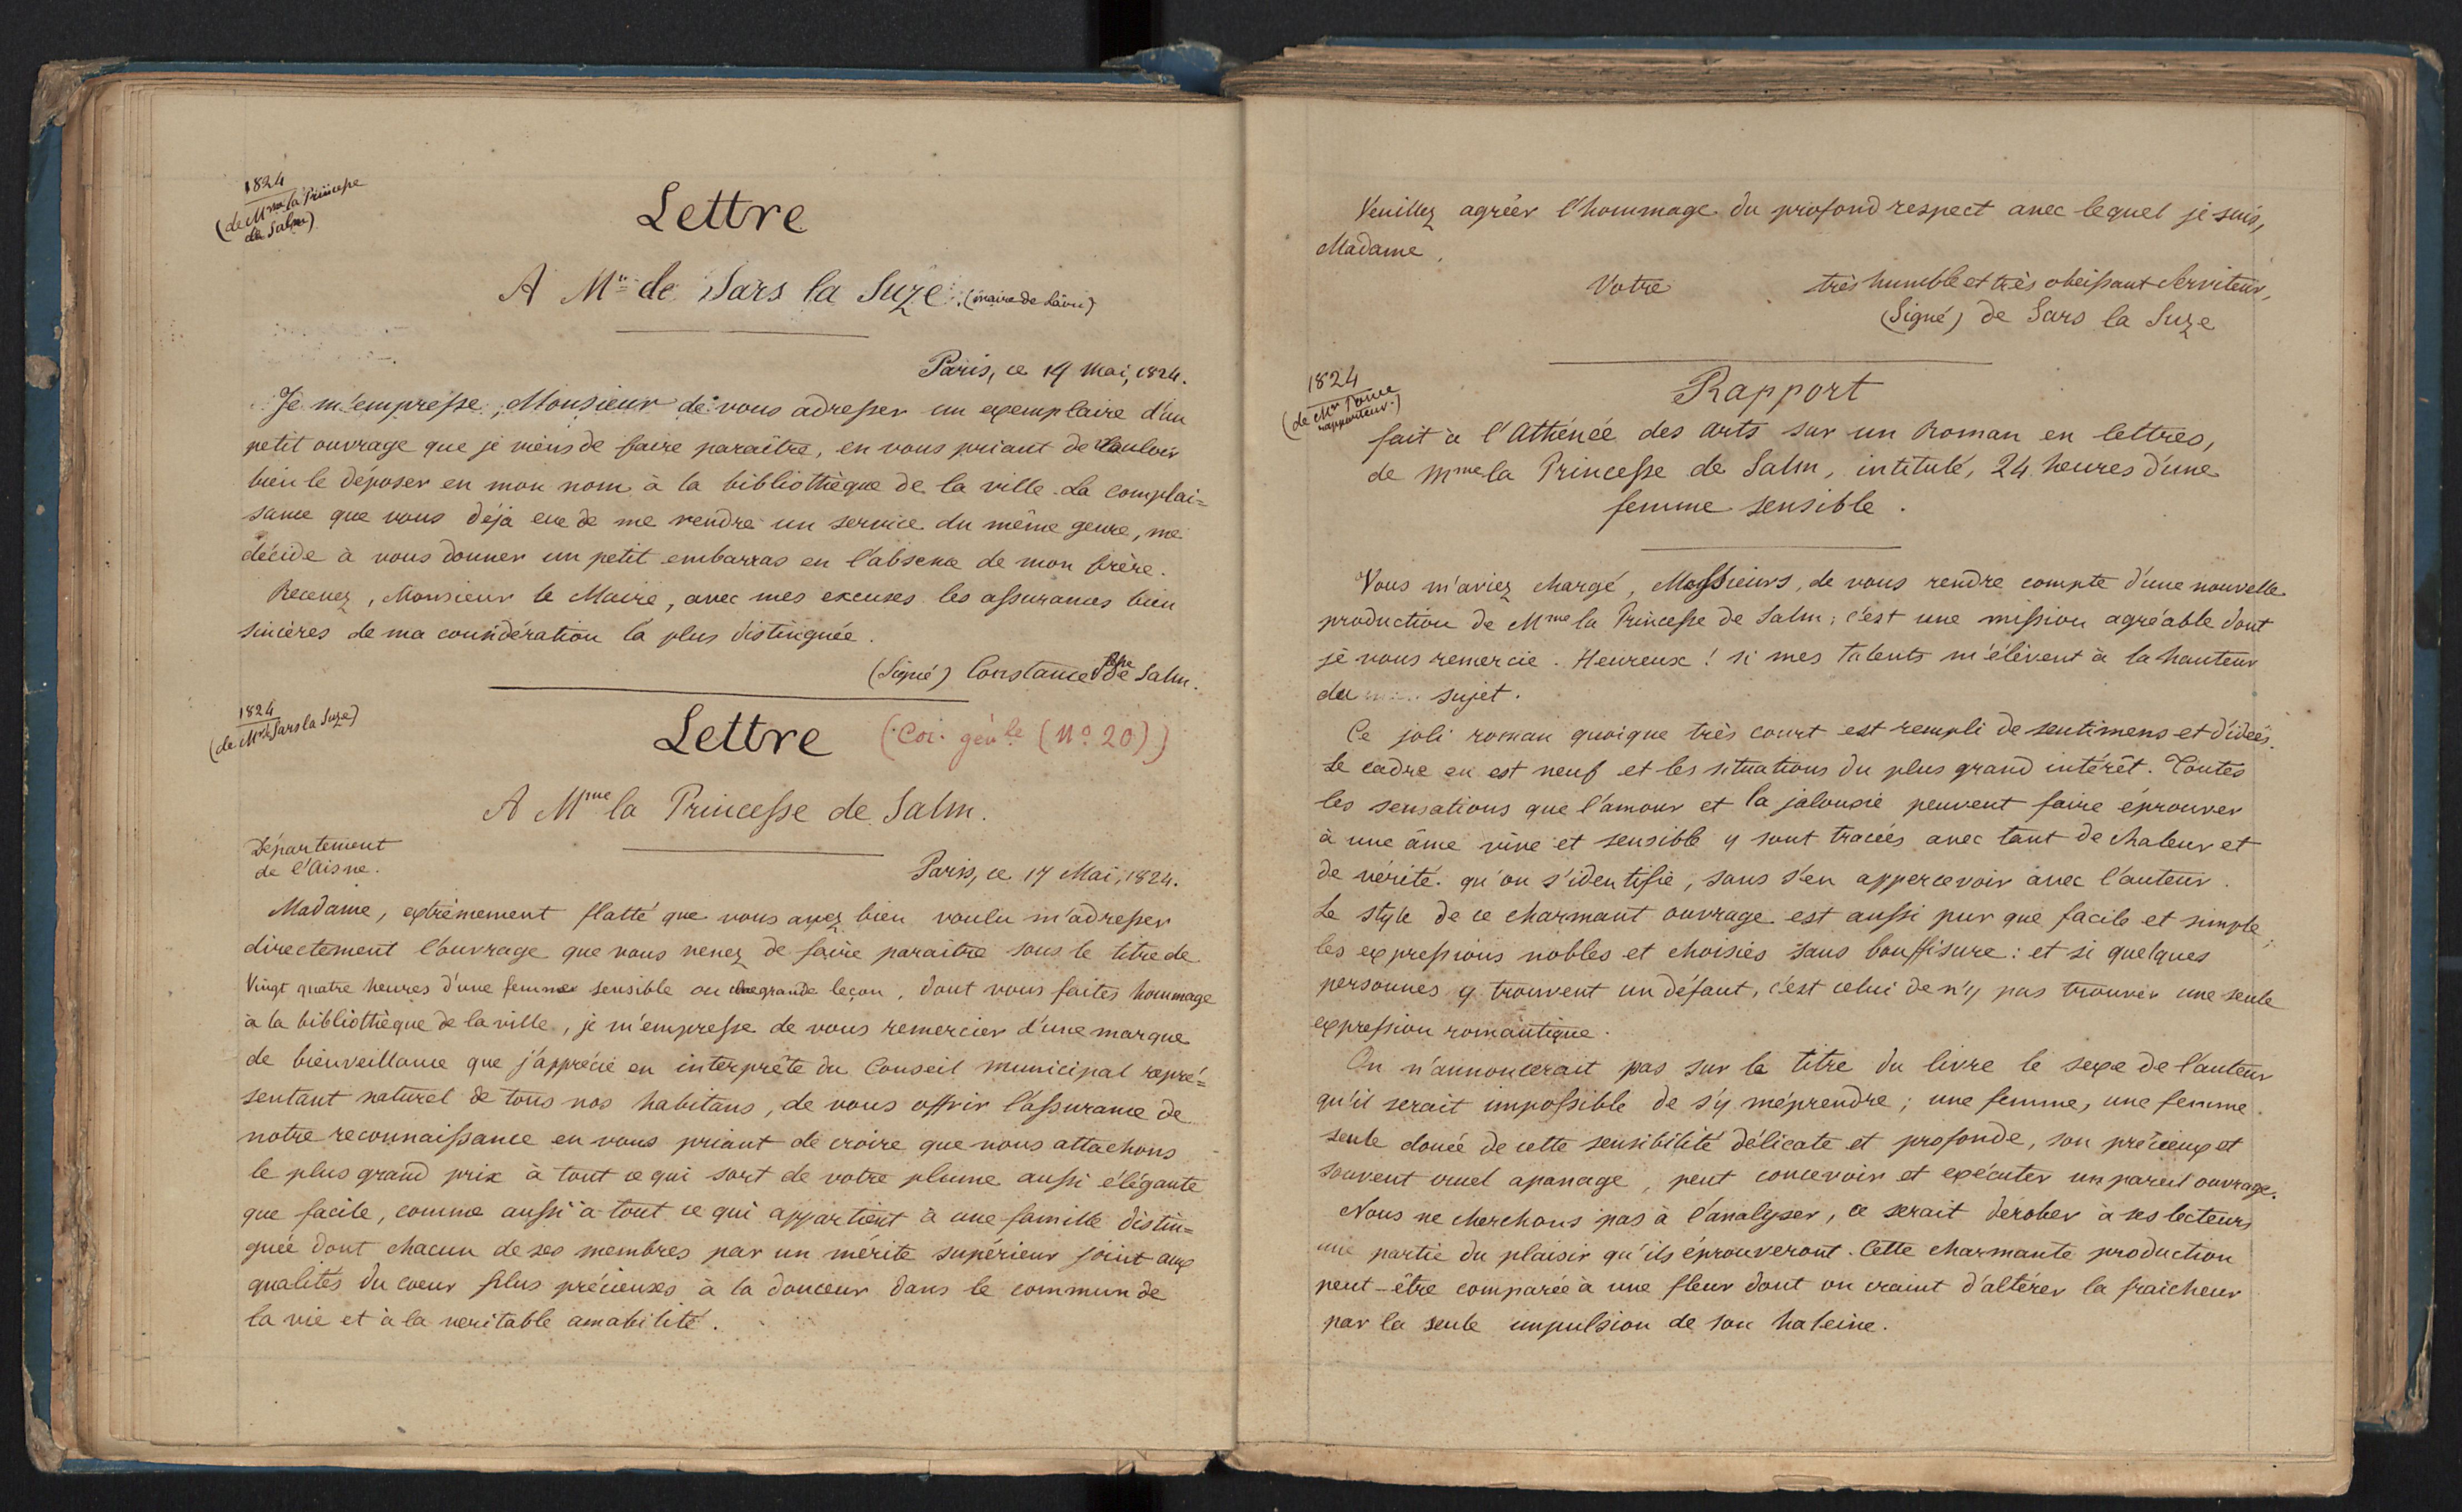 1824
(de Mme la Princesse
de Salm)
Lettre
A Mr de Sars la Suze (maire de Laön)
Paris, ce 14 Mai, 1824.
Je m'empresse, Monsieur de vous adresser un exemplaire d'un
petit ouvrage que je viens de faire paraître, en vous priant de vouloir
bien le déposer en mon nom à la bibliothèque de la ville. La complai=
sance que vous déjà eue de me rendre un service du même genre, me
décide à vous donner un petit embarras en l'absence de mon frère.
Recevez, Monsieur le Maire, avec mes excuses les assurances bien
sincères de ma considération la plus distinguée.
(Signé) Constance Psse de Salm.
1824
(de Mr de Sars la Suze)
Lettre (Cor. génle (No. 20))
A Mme la Princesse de Salm.
Département
de l'Aisne.
Paris, ce 17 Mai, 1824.
Madame, extrêmement flatté que vous ayez bien voulu m'adresser
directement l'ouvrage que vous venez de faire paraitre sous le titre de
Vingt quatre heures d'une femme sensible ou une grande leçon, dont vous faites hommage
à la bibliothèque de la ville, je m'empresse de vous remercier d'une marque
de bienveillance que j'apprécie en interprête du Conseil municipal repré=
sentant naturel de tous nos habitans, de vous offrir l'assurance de
notre reconnaissance en vous priant de croire que nous attachons
le plus grand prix à tout ce qui sort de votre plume aussi élégante
que facile, comme aussi à tout ce qui appartient à une famille distin=
guée dont chacun de ses membres par un mérite supérieur joint aux
qualités du coeur plus précieuses à la douceur dans le commun de
la vie et à la veritable amabilité.
Veuillez agréer l'hommage du profond respect avec lequel je suis,
Madame,
Votre très humble et très obeissant Serviteur,
(Signé) de Sars la Suze
1824
(de Mr
rapporteur.)
Rapport
fait à l'Athénée des arts sur un Roman en lettres,
de Mme la Princesse de Salm, intitulé, 24 heures d'une
femme sensible.
Vous m'aviez chargé, Messieurs, de vous rendre compte d'une nouvelle
production de Mme la Princesse de Salm; c'est une mission agréable dont
je vous remercie. Heureux! si mes talents m'élèvent à la hauteur
du sujet.
Ce joli roman quoique très court est rempli de sentimens et d'idées.
Le cadre en est neuf et les situations du plus grand intérêt. Toutes
les sensations que l'amour et la jalousie peuvent faire éprouver
à une âme vive et sensible y sont tracées avec tant de chaleur et
de vérité qu'on s'identifie, sans s'en appercevoir avec l'auteur.
Le style de ce charmant ouvrage est aussi pur que facile et simple;
les expressions nobles et choisies sans bouffisure: et si quelques
personnes y trouvent un défaut, c'est celui de n'y pas trouver une seule
expression romantique.
On n'annoncerait pas sur le titre du livre le sexe de l'auteur
qu'il serait impossible de s'y méprendre; une femme, une femme
seule douée de cette sensibilité délicate et profonde, son précieux et
souvent cruel apanage, peut concevoir et exécuter un pareil ouvrage.
Nous ne cherchons pas à l'analyser, ce serait dérober à ses lecteurs
une partie du plaisir qu'ils éprouveront. Cette charmante production
peut-être comparée à une fleur dont on craint d'altérer la fraicheur
par la seule impulsion de son haleine.